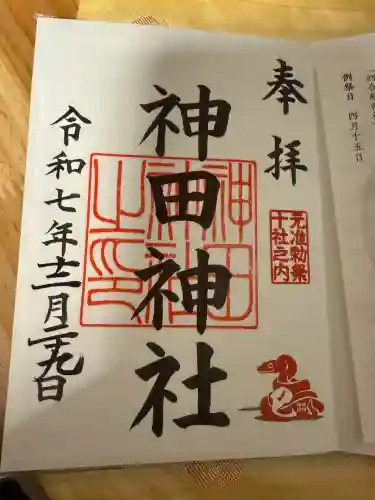 例祭日 四月十五日
奉拝
元准勅祭
十社之内
神田神社
神田
神社
之印
令和七年十二月二十九日